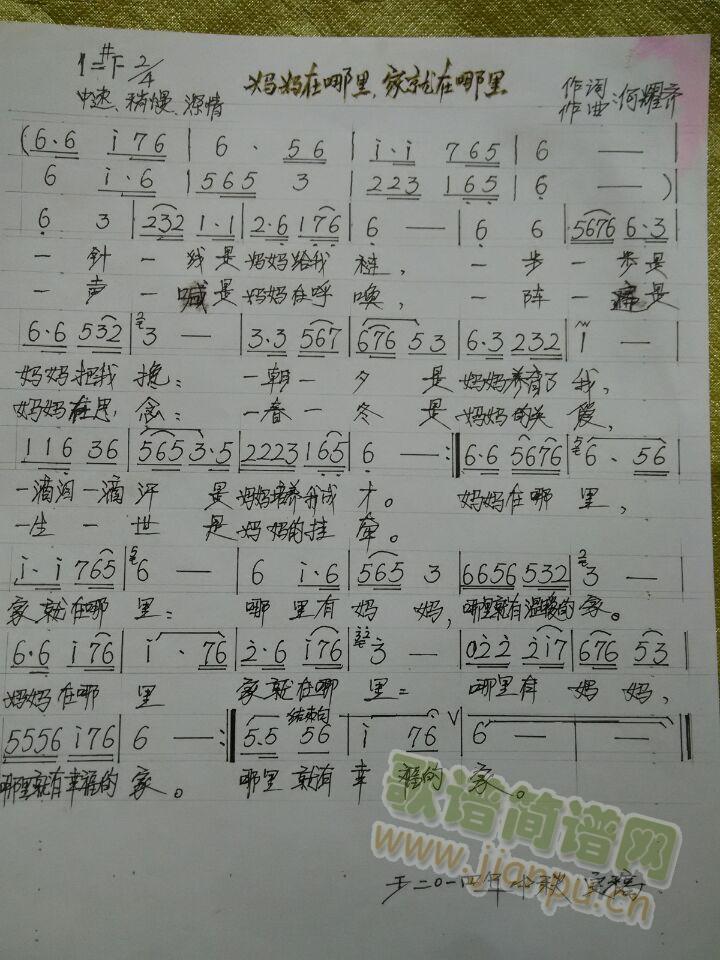 1=#F 2/4
妈妈在哪里,家就在哪里
中速、稍慢、深情
作词
作曲:何耀齐
(6·6 i76 | 6 · 56 | i·i 765 | 6 — |
6 i·6 | 565 3 | 223 165 | 6 — )
6 3 | 232 1·1 | 2·6 176 | 6 — | 6 6 | 5676 6·3 |
一针一线是妈妈给我 一步一步是
一声一喊是妈妈在呼唤, 一阵一痛是
6·6 532 | 3 — | 3·3 567 | 676 53 | 6·3 232 | i — |
妈妈把我挽; 一朝一夕是妈妈养育了我,
妈妈在思念; 一春一冬是妈妈的关爱,
116 36 | 565 3·5 | 2223 165 | 6 — :‖ 6·6 5676 | 6· 56 |
一滴泪一滴汗是妈妈培养我成才。 妈妈在哪里,
一生一世是妈妈的挂牵。
i·i 765 | 6 — | 6 i·6 | 565 3 | 6656 532 | 3 — |
家就在哪里; 哪里有妈妈,哪里就有温暖的家。
6·6 i76 | i · 76 | 2·6 i76 | 3 — | 022 2i7 | 676 53 |
妈妈在哪里 家就在哪里; 哪里有妈妈,
结束句
5556 i76 | 6 — :‖ 5·5 56 | i 76 V | 6 — | — ‖
哪里就有幸福的家。 哪里就有幸福的家。
歌谱简谱网
www.jianpu.cn
于二〇一四年中秋定稿